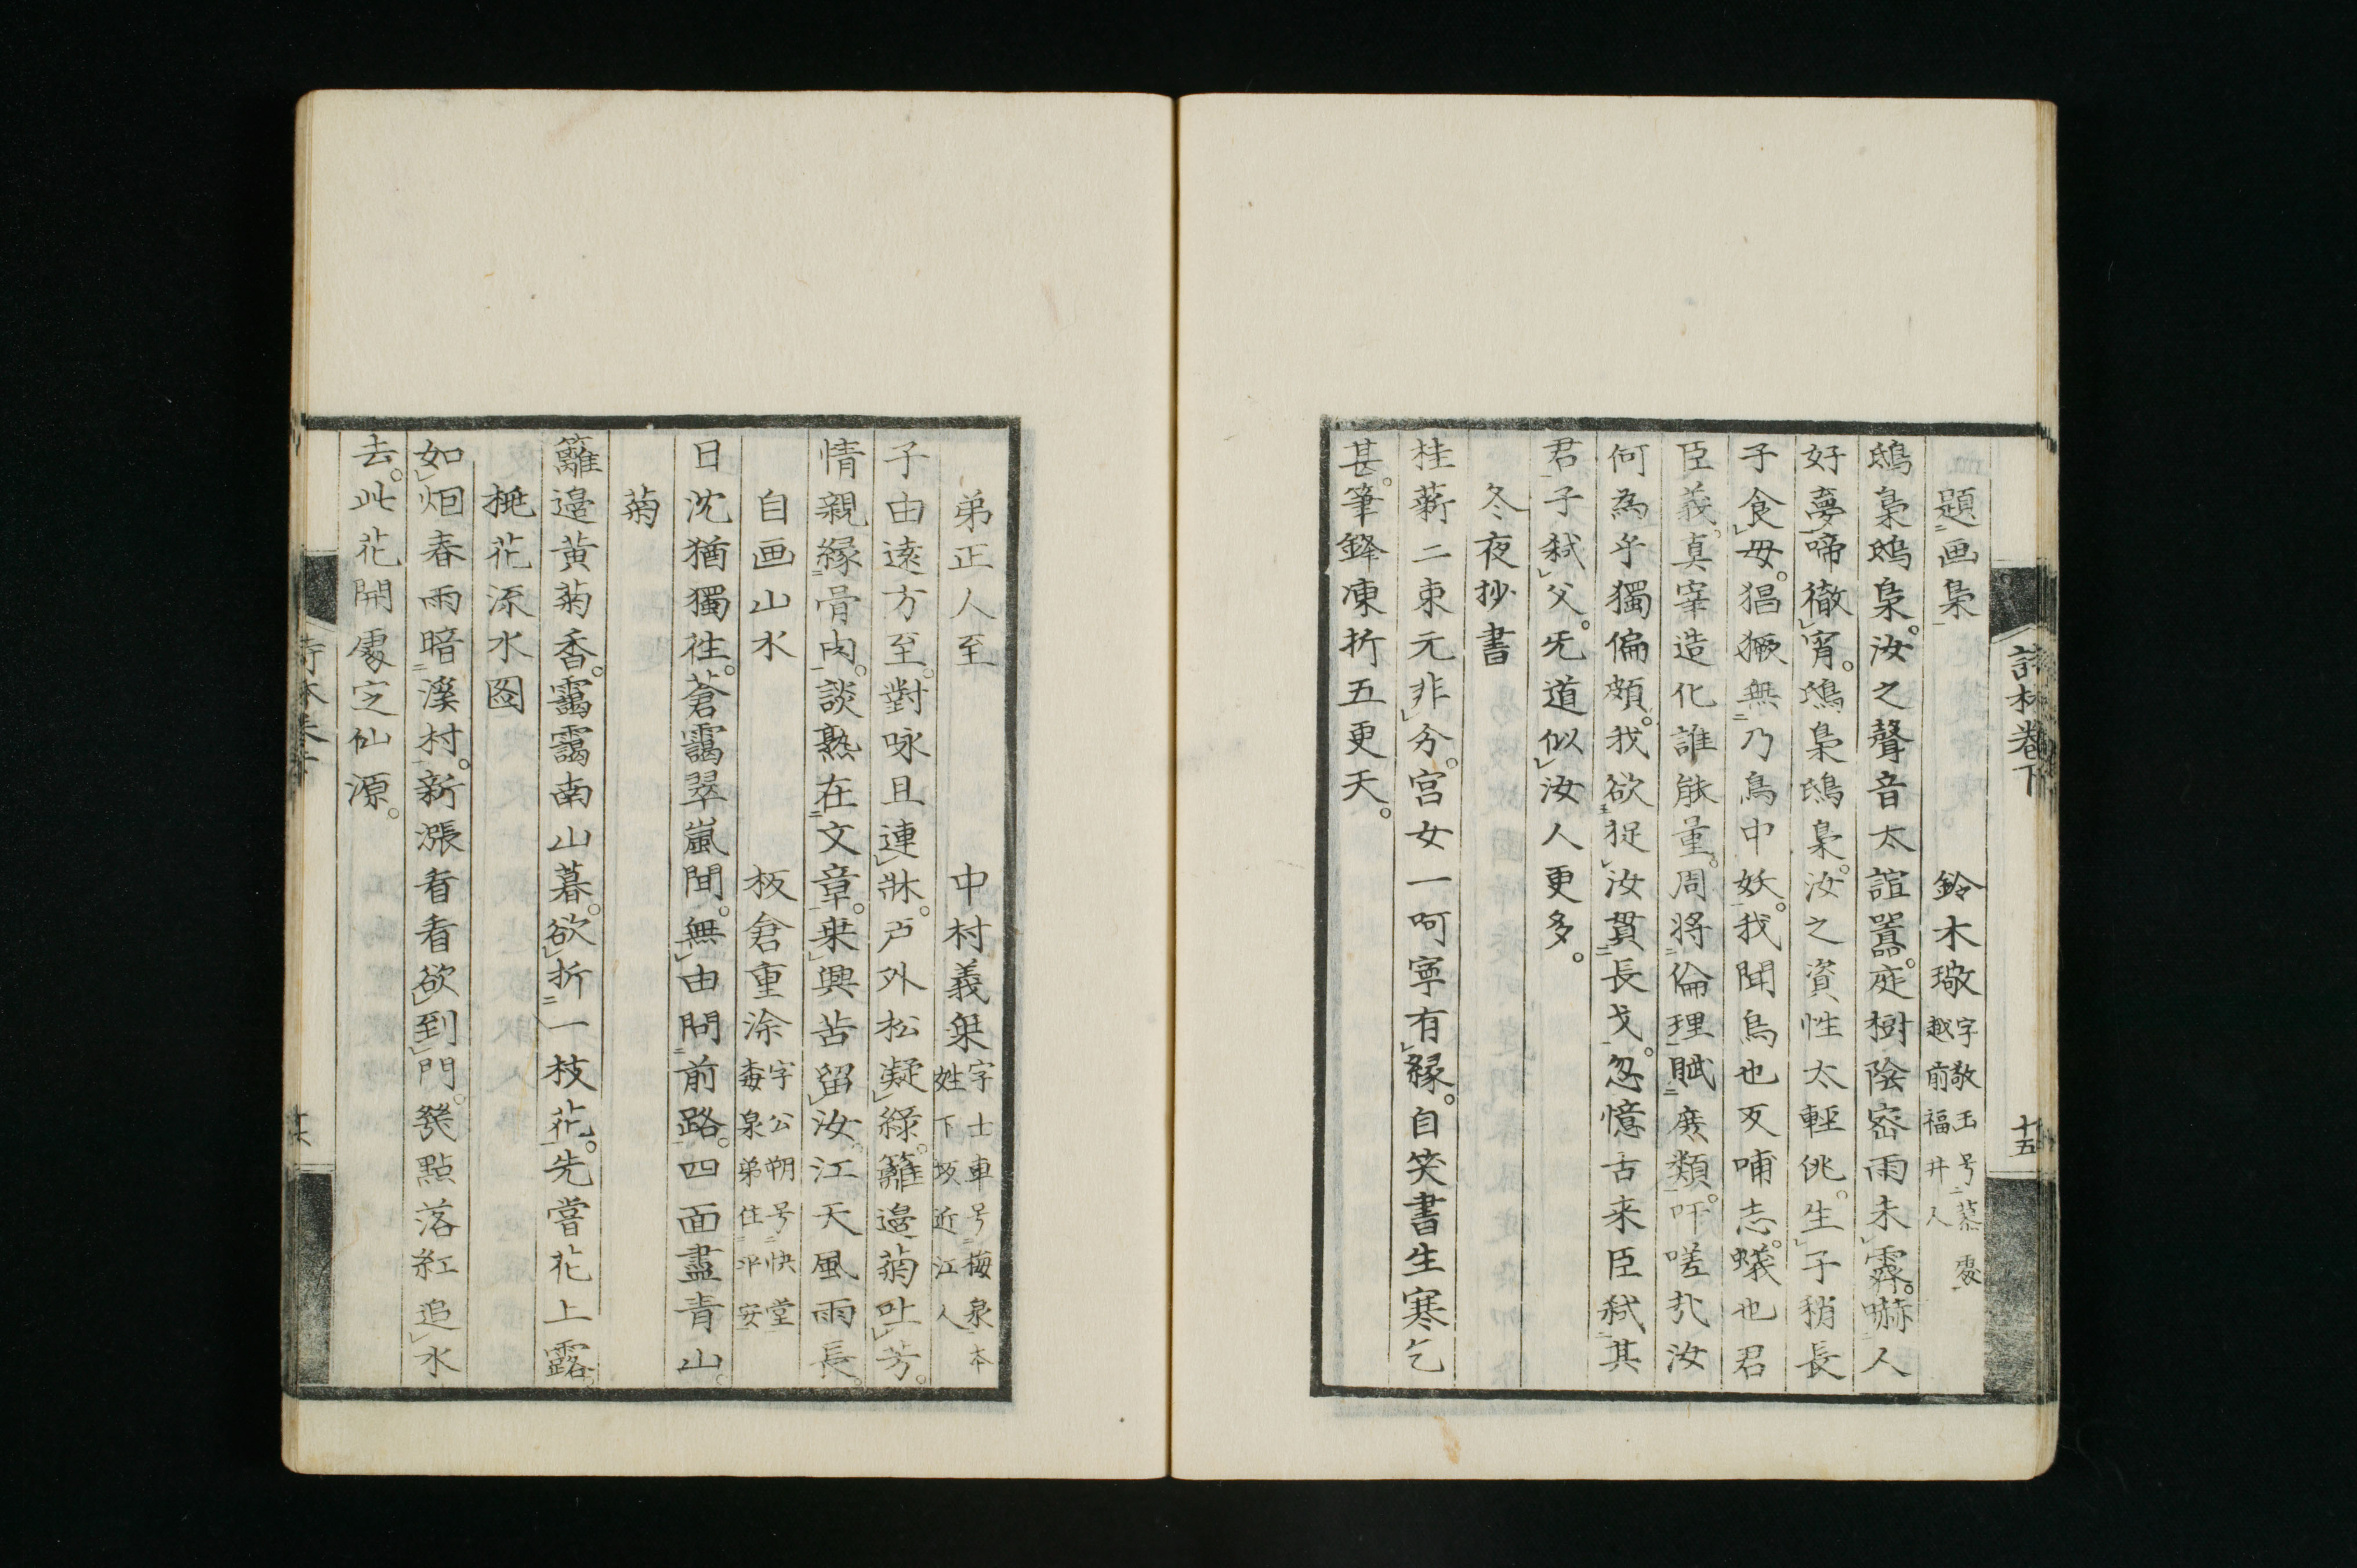 詩林卷下
十五
題画梟 鈴木璥 字敬玉号慕
越前福井人
鴟梟鴟梟。汝之聲音太諠囂。庭樹陰密雨未霽。嚇人
好夢啼徹宵。鴟梟鴟梟。汝之資性太輕佻。生子稍長
子食母。猖獗無乃鳥中妖。我聞烏也反哺志。蟻也君
臣義。真宰造化誰能量。周將倫理賦庶類。吁嗟汝
何為乎獨偏頗。我欲捉汝貫長戈。忽憶古来臣弒其
君子弒父。旡道似汝人更多。
冬夜抄書
桂薪二束元非分。宮女一呵寧有縁。自笑書生寒乞
甚。筆鋒凍折五更天。
弟正人至 中村義椉 字士車号梅泉本
姓下坂近江人
子由遠方至。對咏且連牀。戸外松凝緑。籬邉菊吐芳。
情親縁骨肉。談熟在文章。椉興苦留汝。江天風雨長。
自画山水 板倉重涂 字公朔号快堂
毒泉弟住平安
日沈猶獨往。蒼靄翠嵐間。無由問前路。四面盡青山。
菊
籬邉黄菊香。靄靄南山暮。欲折一枝花。先嘗花上露。
桃花流水图
如烟春雨暗溪村。新漲看看欲到門。幾點落紅追水
去。此花開處定仙源。